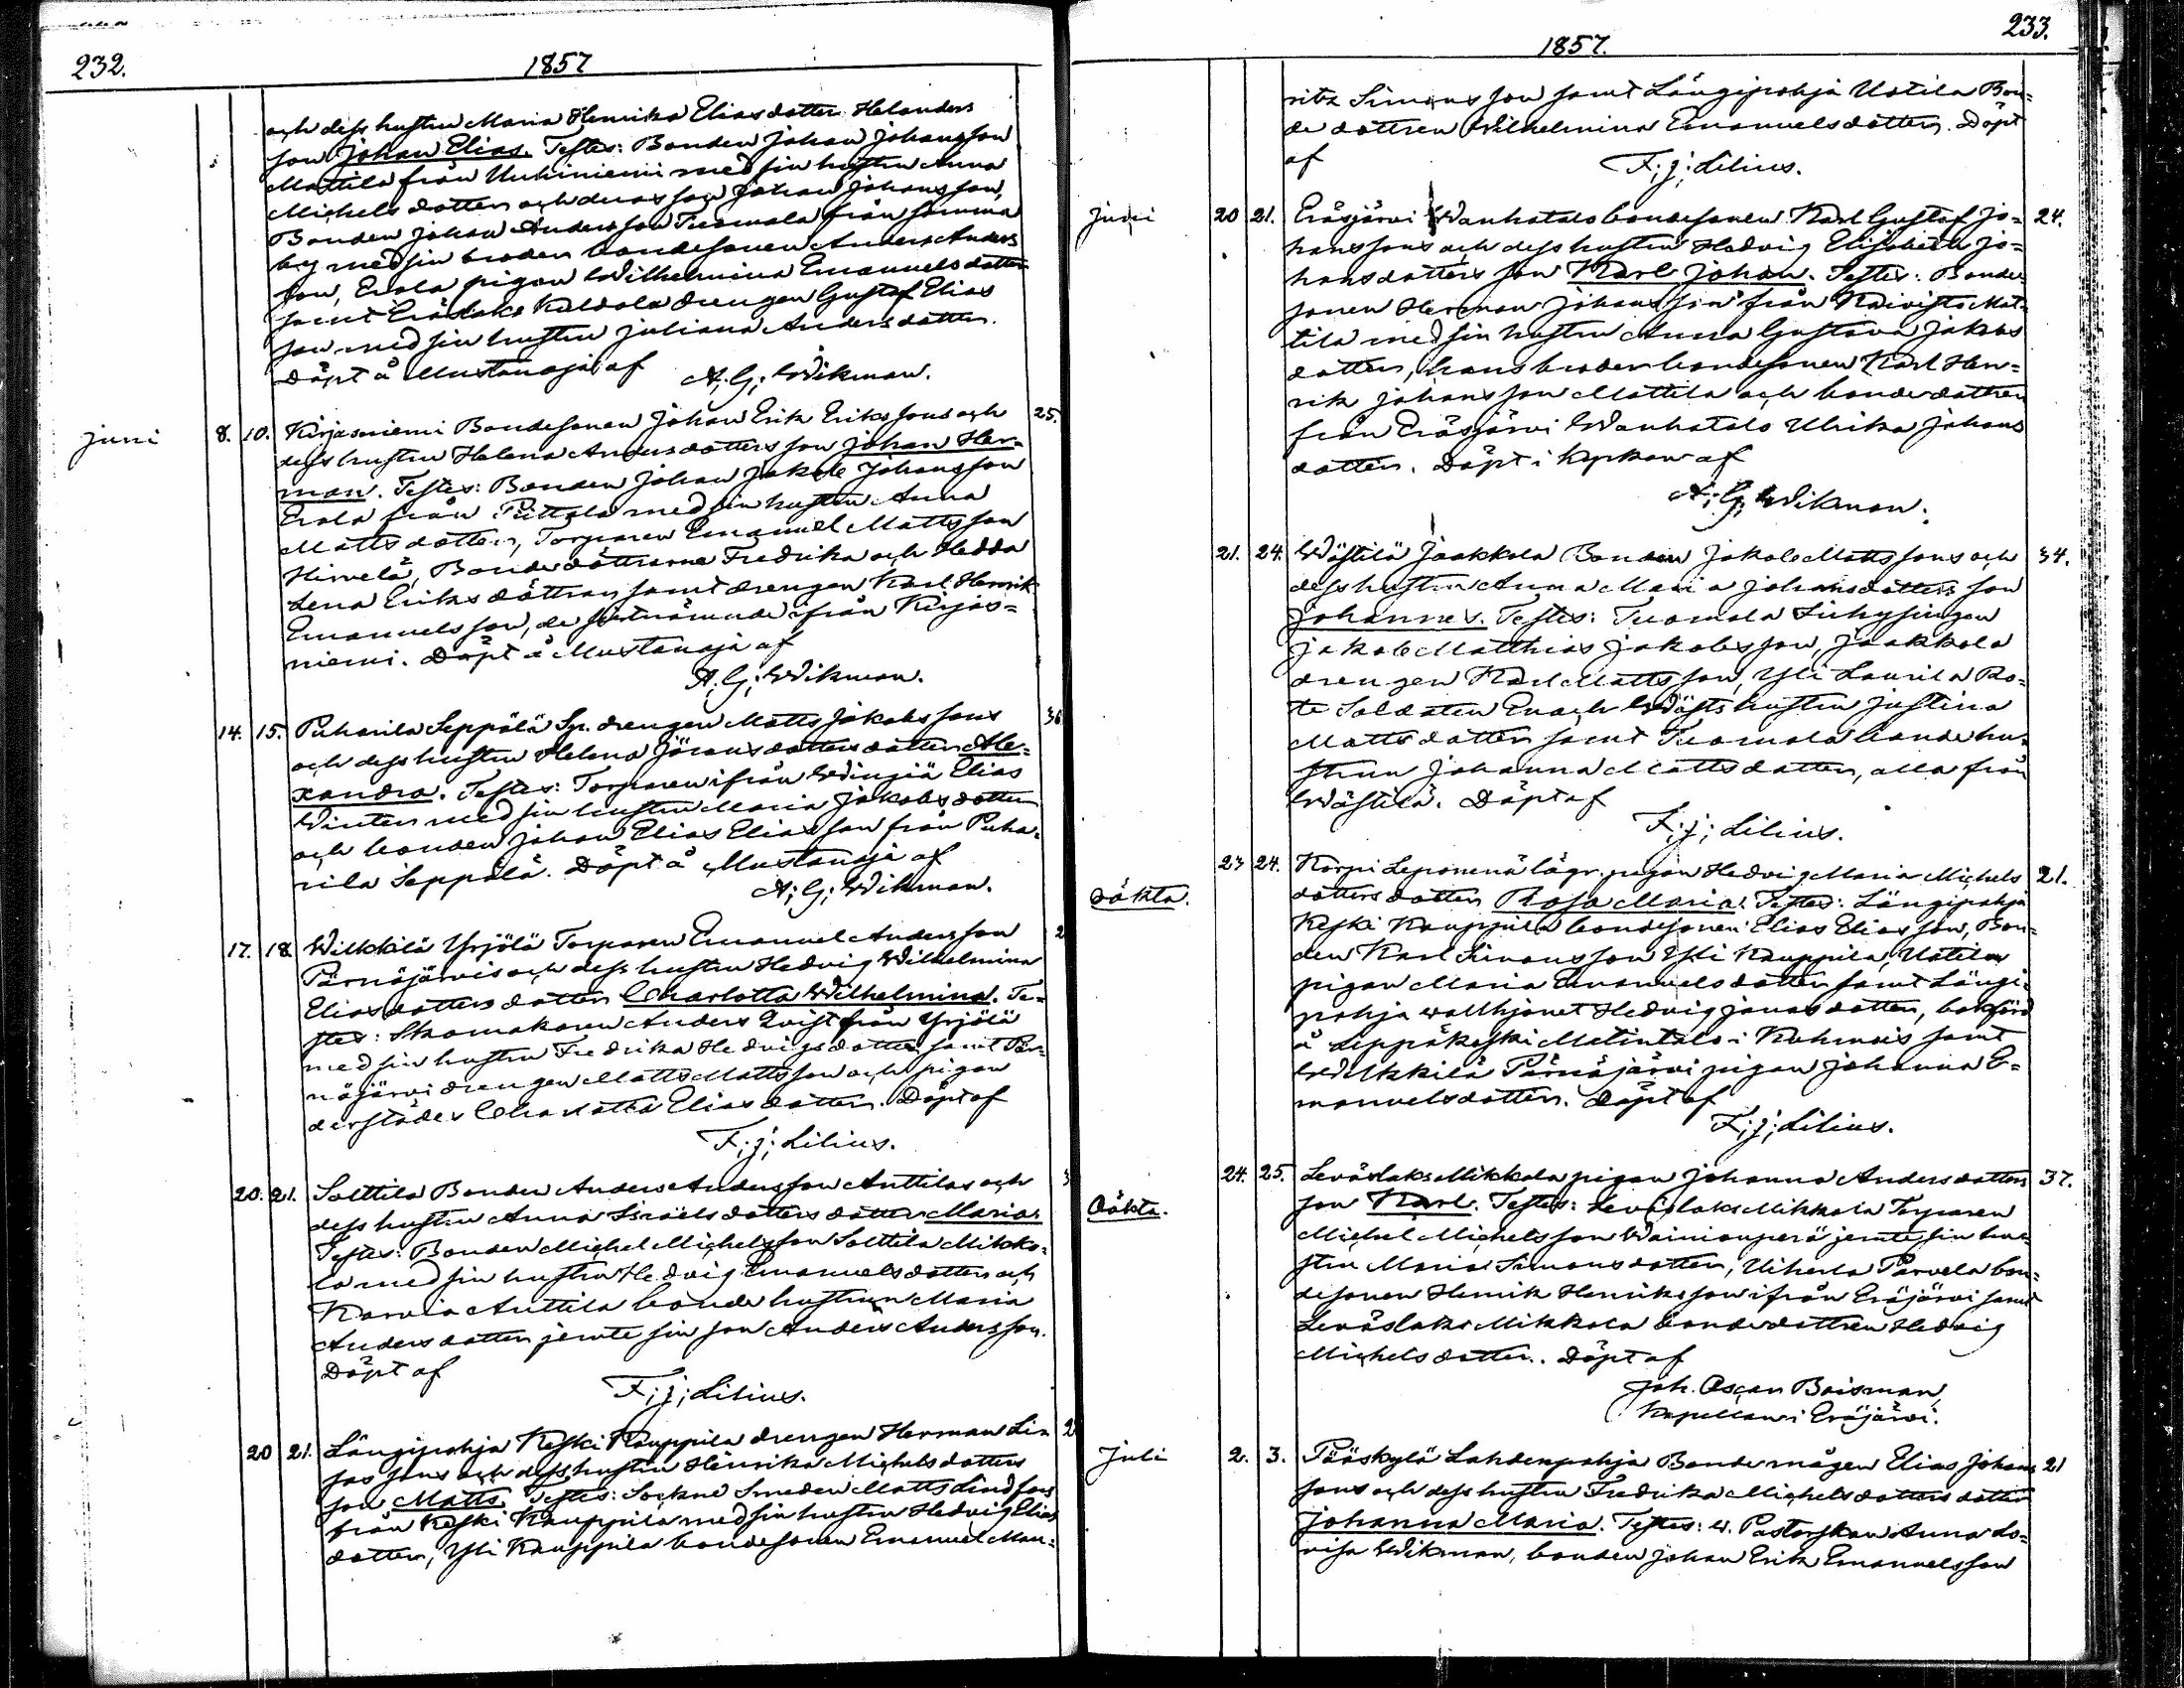 232.
1857
och dess hustru Maria Henrika Eliasdotter Helanders
son Johan Elias. Testes: Bonden Johan Johansson
Mattila från Uuhiniemi med sin hustru Anna
Michelsdotter och deras son Johan Johansson,
Bonden Johan Andersson Tuomala från samma
by med sin broder bondesonen Anders Anders
son, Erola pigan Wilhelmina Emanuelsdotter
samt Eräslaks Kaldola drengen Gustaf Elias
son med sin hustru Juliana Andersdotter.
Döpt å Mustanoja af
A; G; Wikman.
Juni 8. 10. Kirjasniemi Bondesonen Johan Erik Erikssons och 25.
dess hustru Helena Andersdotters son Johan Her=
man. Testes: Bonden Johan Jakob Johansson
Erola från Puttola med sin hustru Anna
Mattsdotter, Torparen Emanuel Mattsson
Hirvelä, Bondedöttrarne Fredrika och Hedda
Lena Eriksdöttrar samt drengen Karl Henrik
Emanuelsson, de sistnämnde ifrån Kirjas=
niemi. Döpt å Mustanoja af
A; G; Wikman.
14. 15. Puharila Seppälä Sp. drengen Matts Jakobssons 36
och dess hustru Helena Jöransdotters dotter Ale=
xandra. Testes: Torparen ifrån Wingiä Elias
Winter med sin hustru Maria Jakobsdotter
och bonden Johan Elias Eliasson från Puha=
rila Seppälä. Döpt å Mustanoja af
A; G; Wikman.
17. 18. Wilkkilä Yrjölä Torparen Emanuel Andersson 2
Pärnäjärvis och dess hustru Hedvig Wilhelmina
Eliasdotters dotter Charlotta Wilhelmina. Te=
stes: Skomakaren Anders Qvist från Yrjölä
med sin hustru Fredrika Hedvigsdotter samt Pär=
näjärvi drengen Matts Mattsson och pigan
derstädes Charlotta Eliasdotter. Döpt af
F; J; Lilius.
20. 21. Solttila Bonden Anders Andersson Anttilas och 3
dess hustru Anna Israelsdotters dotter Maria.
Testes: Bonden Michel Michelsson Solttila Mikko=
la med sin hustru Hedvig Emanuelsdotter och
Karvia Anttila bondehustrun Maria
Andersdotter jemte sin son Anders Andersson.
Döpt af
F; J; Lilius.
20 21. Längipohja Keski Kauppila drengen Herman Li= 2
jas sons och dess hustru Henrika Michelsdotters
son Matts. Testes: Sockne Smeden Matts Lindfors
från Keski Kauppila med sin hustru Hedvig Elias
dotter, Yli Kauppila bondesonen Emanuel Mau=
233.
1857.
ritz Simonsson samt Längipohja Uotila Bon=
de dottren Wilhelmina Emanuelsdotter. Döpt
af
F; J; Lilius.
Juni 20 21. Eräsjärvi Wanhatalo bondesonen Karl Gustaf Jo= 24.
hanssons och dess hustru Hedvig Elisabeth Jo=
hansdotters son Karl Johan. Testes: Bonde=
sonen Herman Johansson från Koivisto Mat=
tila med sin hustru Anna Gustava Jakobs
dotter, hans broder bondesonen Karl Hen=
rik Johansson Mattila och bondedottren
från Eräsjärvi Wanhatalo Ulrika Johans
dotter. Döpt i kyrkan af
A; G; Wikman.
21. 24. Wästilä Jaakkola Bonden Jakob Mattssons och 34.
dess hustru Anna Maria Johansdotters son
Johannes. Testes: Tuomola Inhysingen
Jakob Matthias Jakobsson, Jaakkola
drengen Karl Mattsson, Yli Laurila Ro=
te Soldaten Enoch Wästs hustru Justina
Mattsdotter samt Tuomola bondehu=
strun Johanna Mattsdotter, alla från
Wästilä. Döpt af
F; J; Lilius.
Oäkta. 23 24. Korpi Leponenä lägr. pigan Hedvig Maria Michels 21.
dotters dotter Rosa Maria. Testes: Längipohja
Keski Kauppila bondesonen Elias Eliasson, Bon=
den Karl Simonsson Yli Kauppila, Uotila
pigan Maria Emanuelsdotter samt Längi=
pohja wallhjonet Hedvig Jonasdotter, bokförd
å Leppäkoski Matintalo i Kuhmois samt
Wilkkilä Pärnäjärvi pigan Johanna E=
manuelsdotter. Döpt af
F; J; Lilius.
Oäkta. 24. 25. Leväslaks Mikkola pigan Johanna Andersdotters 37.
son Karl. Testes: Leväslaks Mikkola Torparen
Michel Michelsson Wainionperä jemte sin hu=
stru Maria Simonsdotter, Uiherla Parvela bon=
desonen Henrik Henriksson ifrån Eräjärvi samt
Leväslaks Mikkola bondedottren Hedvig
Michelsdotter. Döpt af
Joh. Oscar Boisman,
Kapellan i Eräjärvi.
Juli 2. 3. Pääskylä Lahdenpohja Bondemågen Elias Johans 21
sons och dess hustru Fredrika Michelsdotters dotter
Johanna Maria. Testes: v. Pastorskan Anna Lo=
visa Wikman, bonden Johan Erik Emanuelsson